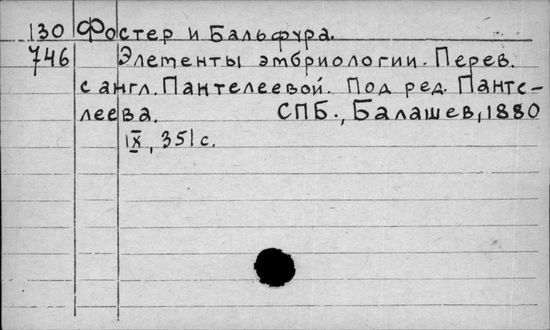 130 Фостер и Бальфура.
746 Элементы эмбриологии. Перев.
с англ. Пантелеевой. Под ред. Панте-
леева. СПБ., Балашев, 1880
IX, 351 с.